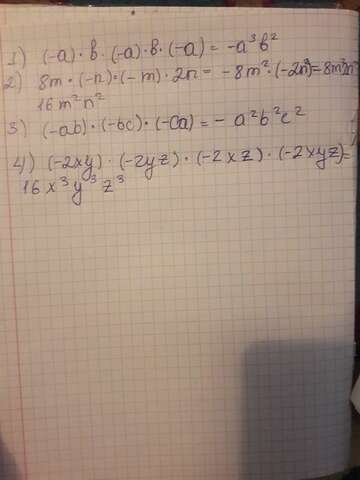 1) (-a)·b·(-a)·b·(-a) = -a³b²
2) 8m·(-n)·(-m)·2n = -8m²·(-2n²) = 8m²2n²
16m²n²
3) (-ab)·(-bc)·(-ca) = - a²b²c²
4) (-2xy)·(-2yz)·(-2xz)·(-2xyz) =
16x³y³z³